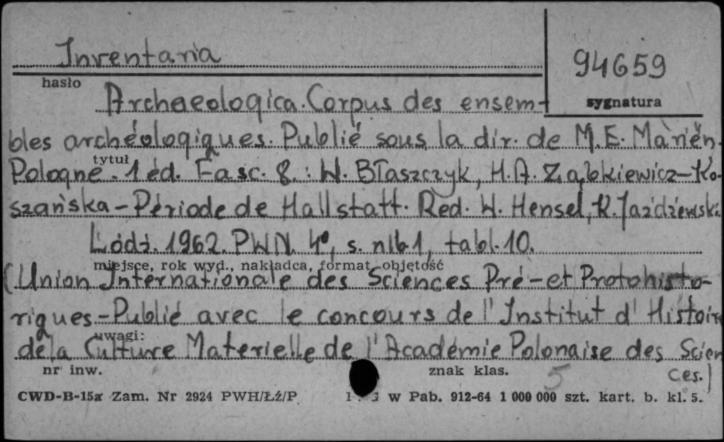 Inventaria
94659
hasło
sygnatura
Archaeologica. Corpus des ensem-
bles archéologiques. Publié sous la dir. de M.E. Mariën.
tytuł
Pologne. 1 éd. Fasc. 8.: W. Błaszczyk, H.A. Ząbkiewicz-Ko-
szańska - Période de Hallstatt. Red. W. Hensel, K. Jażdżewski.
Łódź. 1962. PWN. 4°, s. nlb1, tabl. 10.
miejsce, rok wyd., nakładca, format, objętość
(Union Internationale des Sciences Pré- et Protohisto-
riques - Publié avec le concours de l'Institut d'Histoire
uwagi:
de la Culture Materielle de l'Académie Polonaise des Scien
nr inw.
znak klas.
5
ces.)
CWD-B-15a Zam. Nr 2924 PWH/Łź/P w Pab. 912-64 1 000 000 szt. kart. b. kl. 5.